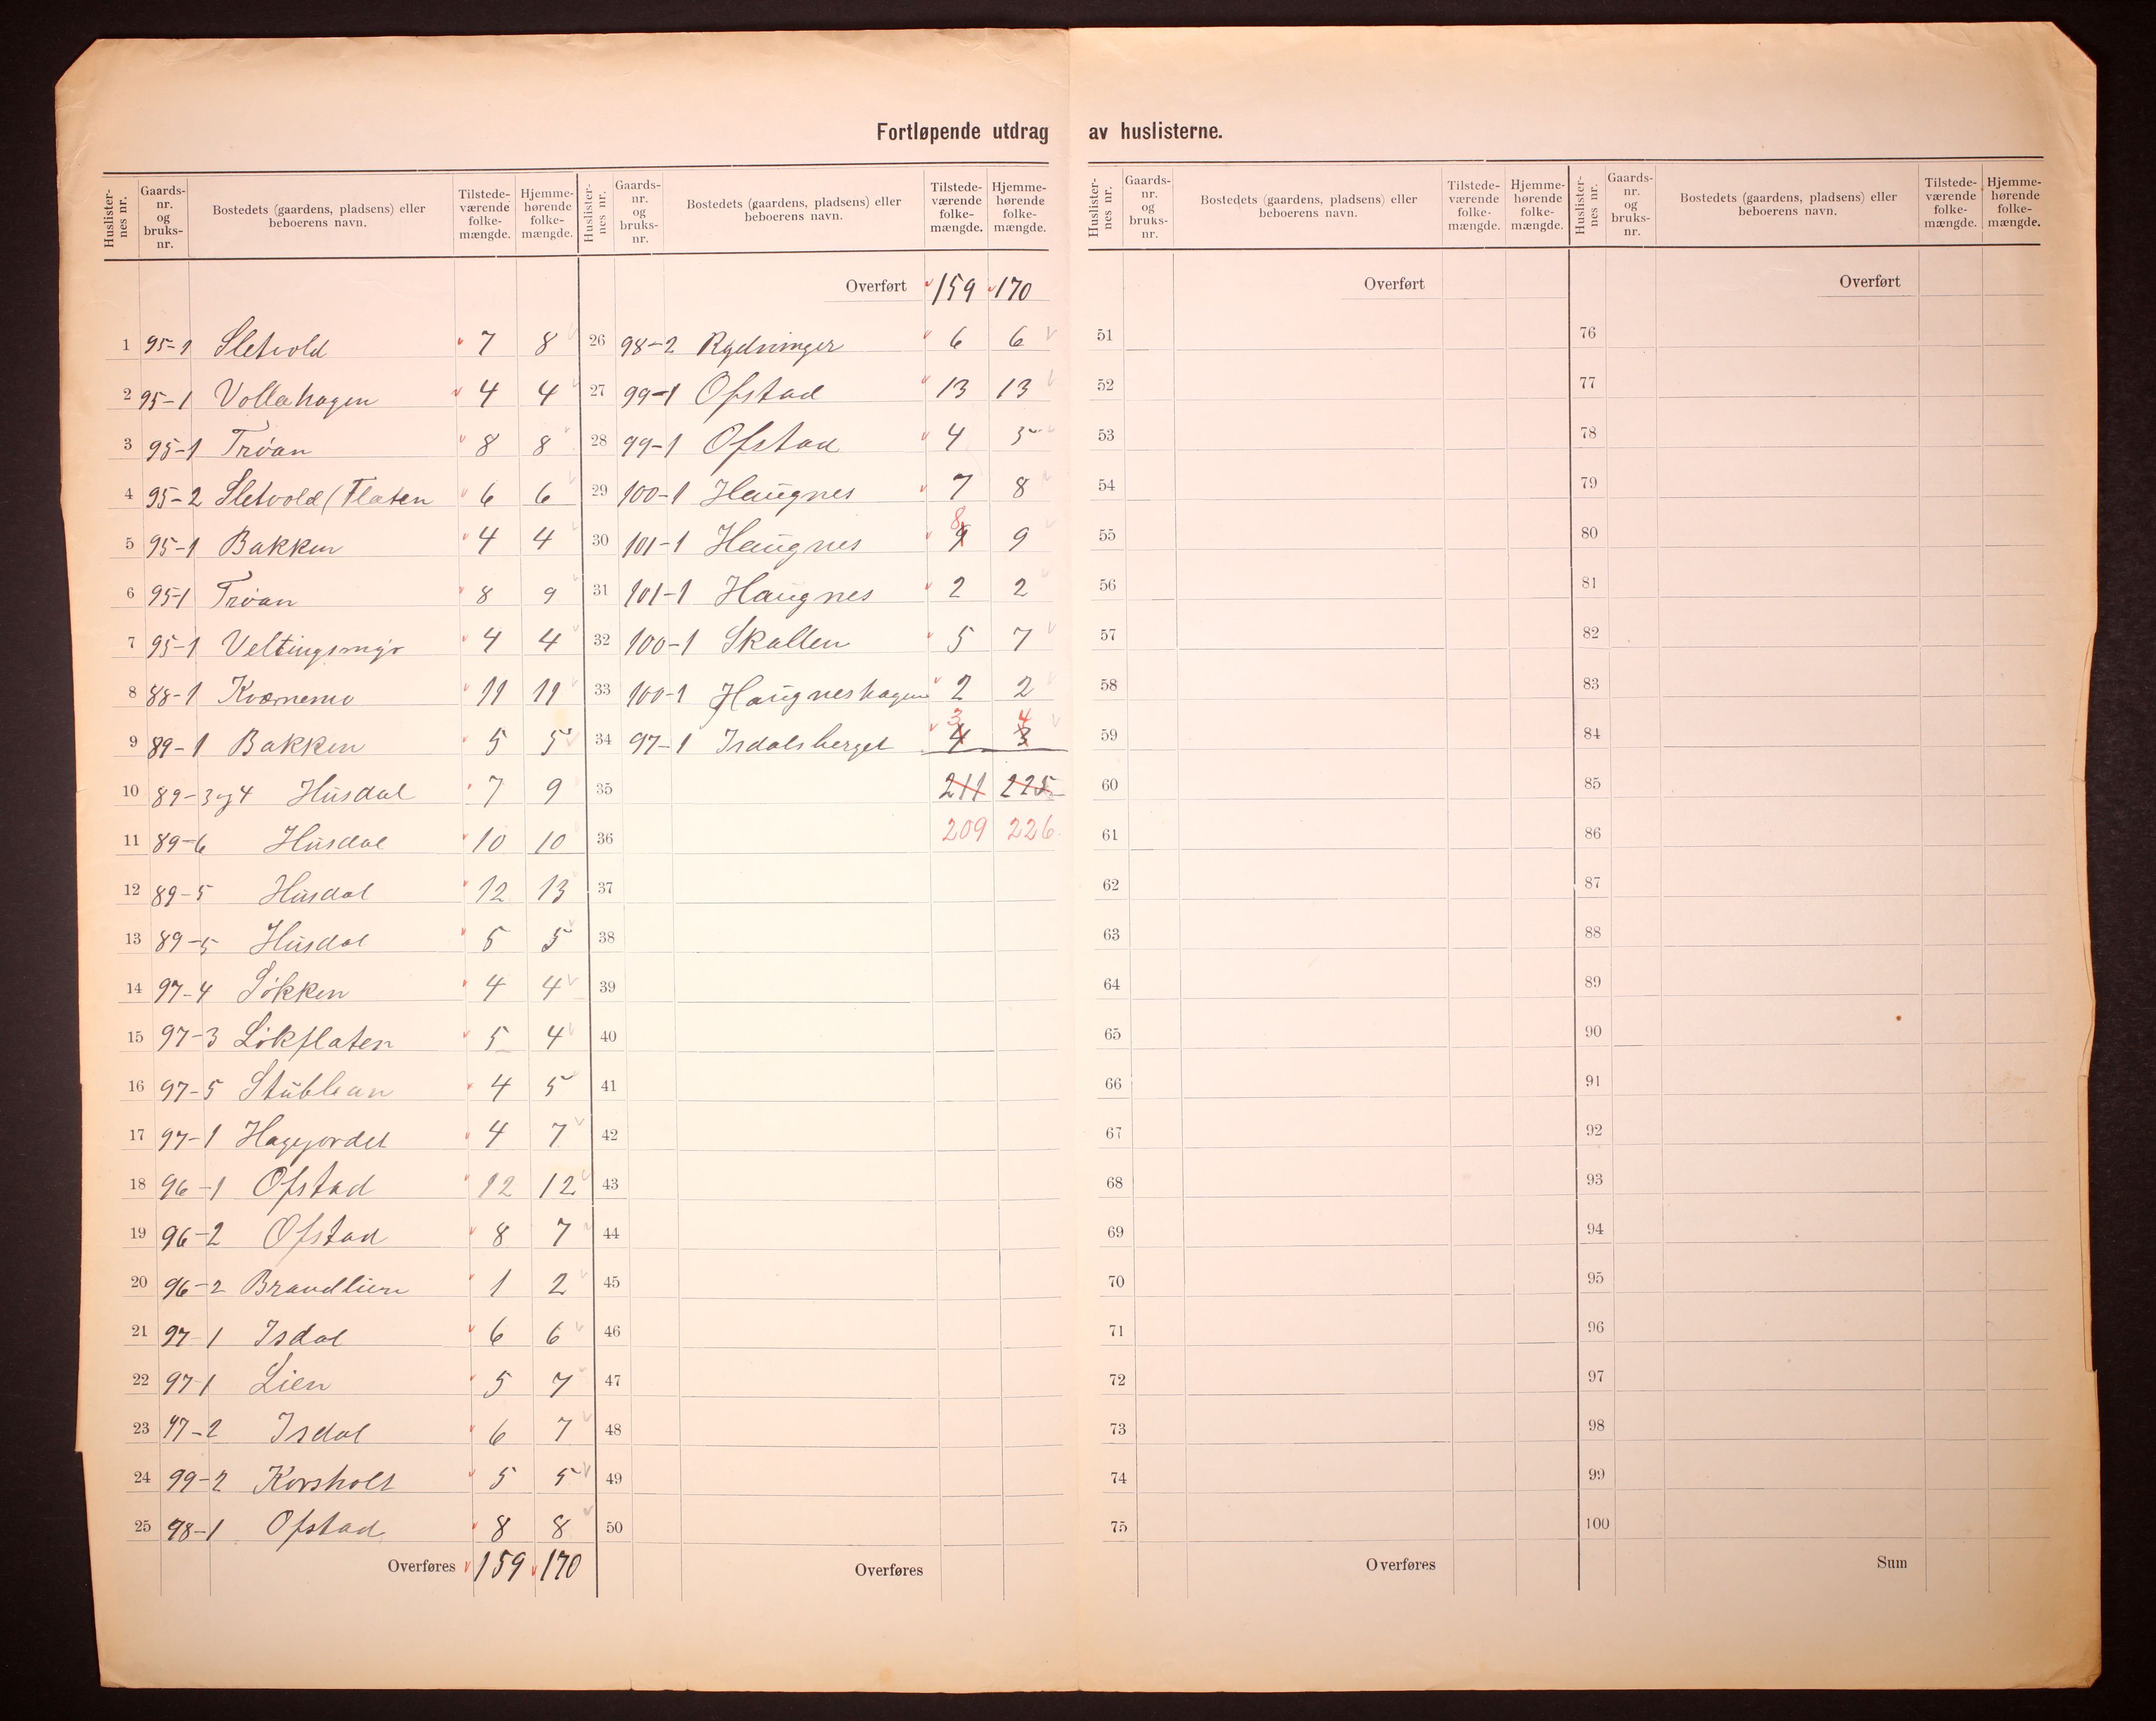 Fortløpende utdrag av huslisterne.
Huslister-nes nr. | Gaards-nr. og bruks-nr. | Bostedets (gaardens, pladsens) eller beboerens navn. | Tilstede-værende folke-mængde. | Hjemme-hørende folke-mængde.
1 95-1 Sletvold 7 8
2 95-1 Vollahagen 4 4
3 95-1 Trøan 8 8
4 95-2 Sletvold (Flaten 6 6
5 95-1 Bakken 4 4
6 95-1 Trøan 8 9
7 95-1 Veltingsmyr 4 4
8 88-1 Kværnemo 11 11
9 89-1 Bakken 5 5
10 89-3 og 4 Husdal 7 9
11 89-6 Husdal 10 10
12 89-5 Husdal 12 13
13 89-5 Husdal 5 5
14 97-4 Løkken 4 4
15 97-3 Løkflaten 5 4
16 97-5 Stublean 4 5
17 97-1 Hagejordet 4 7
18 96-1 Ofstad 12 12
19 96-2 Ofstad 8 7
20 96-2 Brandlien 1 2
21 97-1 Isdal 6 6
22 97-1 Lien 5 7
23 97-2 Isdal 6 7
24 99-2 Korsholt 5 5
25 98-1 Ofstad 8 8
Overføres 159 170
Huslister-nes nr. | Gaards-nr. og bruks-nr. | Bostedets (gaardens, pladsens) eller beboerens navn. | Tilstede-værende folke-mængde. | Hjemme-hørende folke-mængde.
Overført 159 170
26 98-2 Rydninger 6 6
27 99-1 Ofstad 13 13
28 99-1 Ofstad 4 5
29 100-1 Haugnes 7 8
30 101-1 Haugnes 9 8 9
31 101-1 Haugnes 2 2
32 100-1 Skallen 5 7
33 100-1 Haugneshagen 2 2
34 97-1 Isdalsberget 4 3 3 4
35 211 225
36 209 226
37
38
39
40
41
42
43
44
45
46
47
48
49
50
Overføres
Huslister-nes nr. | Gaards-nr. og bruks-nr. | Bostedets (gaardens, pladsens) eller beboerens navn. | Tilstede-værende folke-mængde. | Hjemme-hørende folke-mængde.
Overført
51
52
53
54
55
56
57
58
59
60
61
62
63
64
65
66
67
68
69
70
71
72
73
74
75
Overføres
Huslister-nes nr. | Gaards-nr. og bruks-nr. | Bostedets (gaardens, pladsens) eller beboerens navn. | Tilstede-værende folke-mængde. | Hjemme-hørende folke-mængde.
Overført
76
77
78
79
80
81
82
83
84
85
86
87
88
89
90
91
92
93
94
95
96
97
98
99
100
Sum